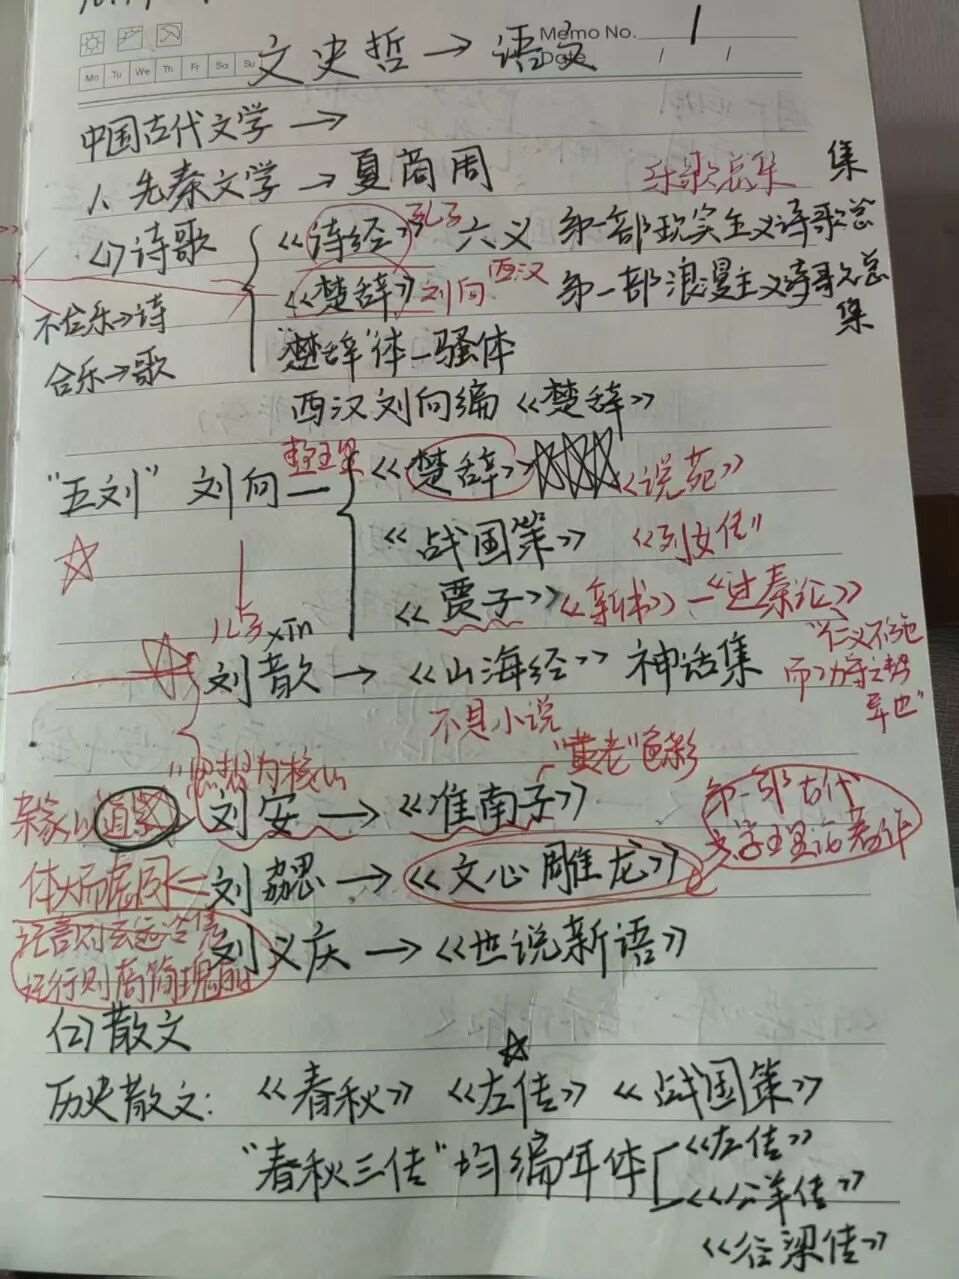 Memo No. 1
Mo Tu We Th Fr Sa Su
Date / /
文史哲→语文
中国古代文学→
1、先秦文学→夏商周
乐歌总集
集
(1)诗歌
《诗经》孔子 六义 第一部现实主义诗歌总
《楚辞》刘向 西汉 第一部浪漫主义诗歌总
集
不合乐→诗
合乐→歌
"楚辞"体—骚体
西汉刘向编《楚辞》
"五刘" 刘向 整理 《楚辞》《说苑》
《战国策》 《列女传》
《贾子》《新书》—"过秦论》
"仁义不施
而攻守之势
异也"
儿子 xīn
刘歆→《山海经》神话集
不是小说
"思想为核心
"黄老"色彩
杂家以道家
刘安→《淮南子》
第一部古代
文学理论著作
体大而虑周←刘勰→《文心雕龙》
记言则玄远冷隽
记行则高简瑰奇
刘义庆→《世说新语》
(2)散文
历史散文:《春秋》《左传》《战国策》
"春秋三传"均编年体
《左传》
《公羊传》
《谷梁传》